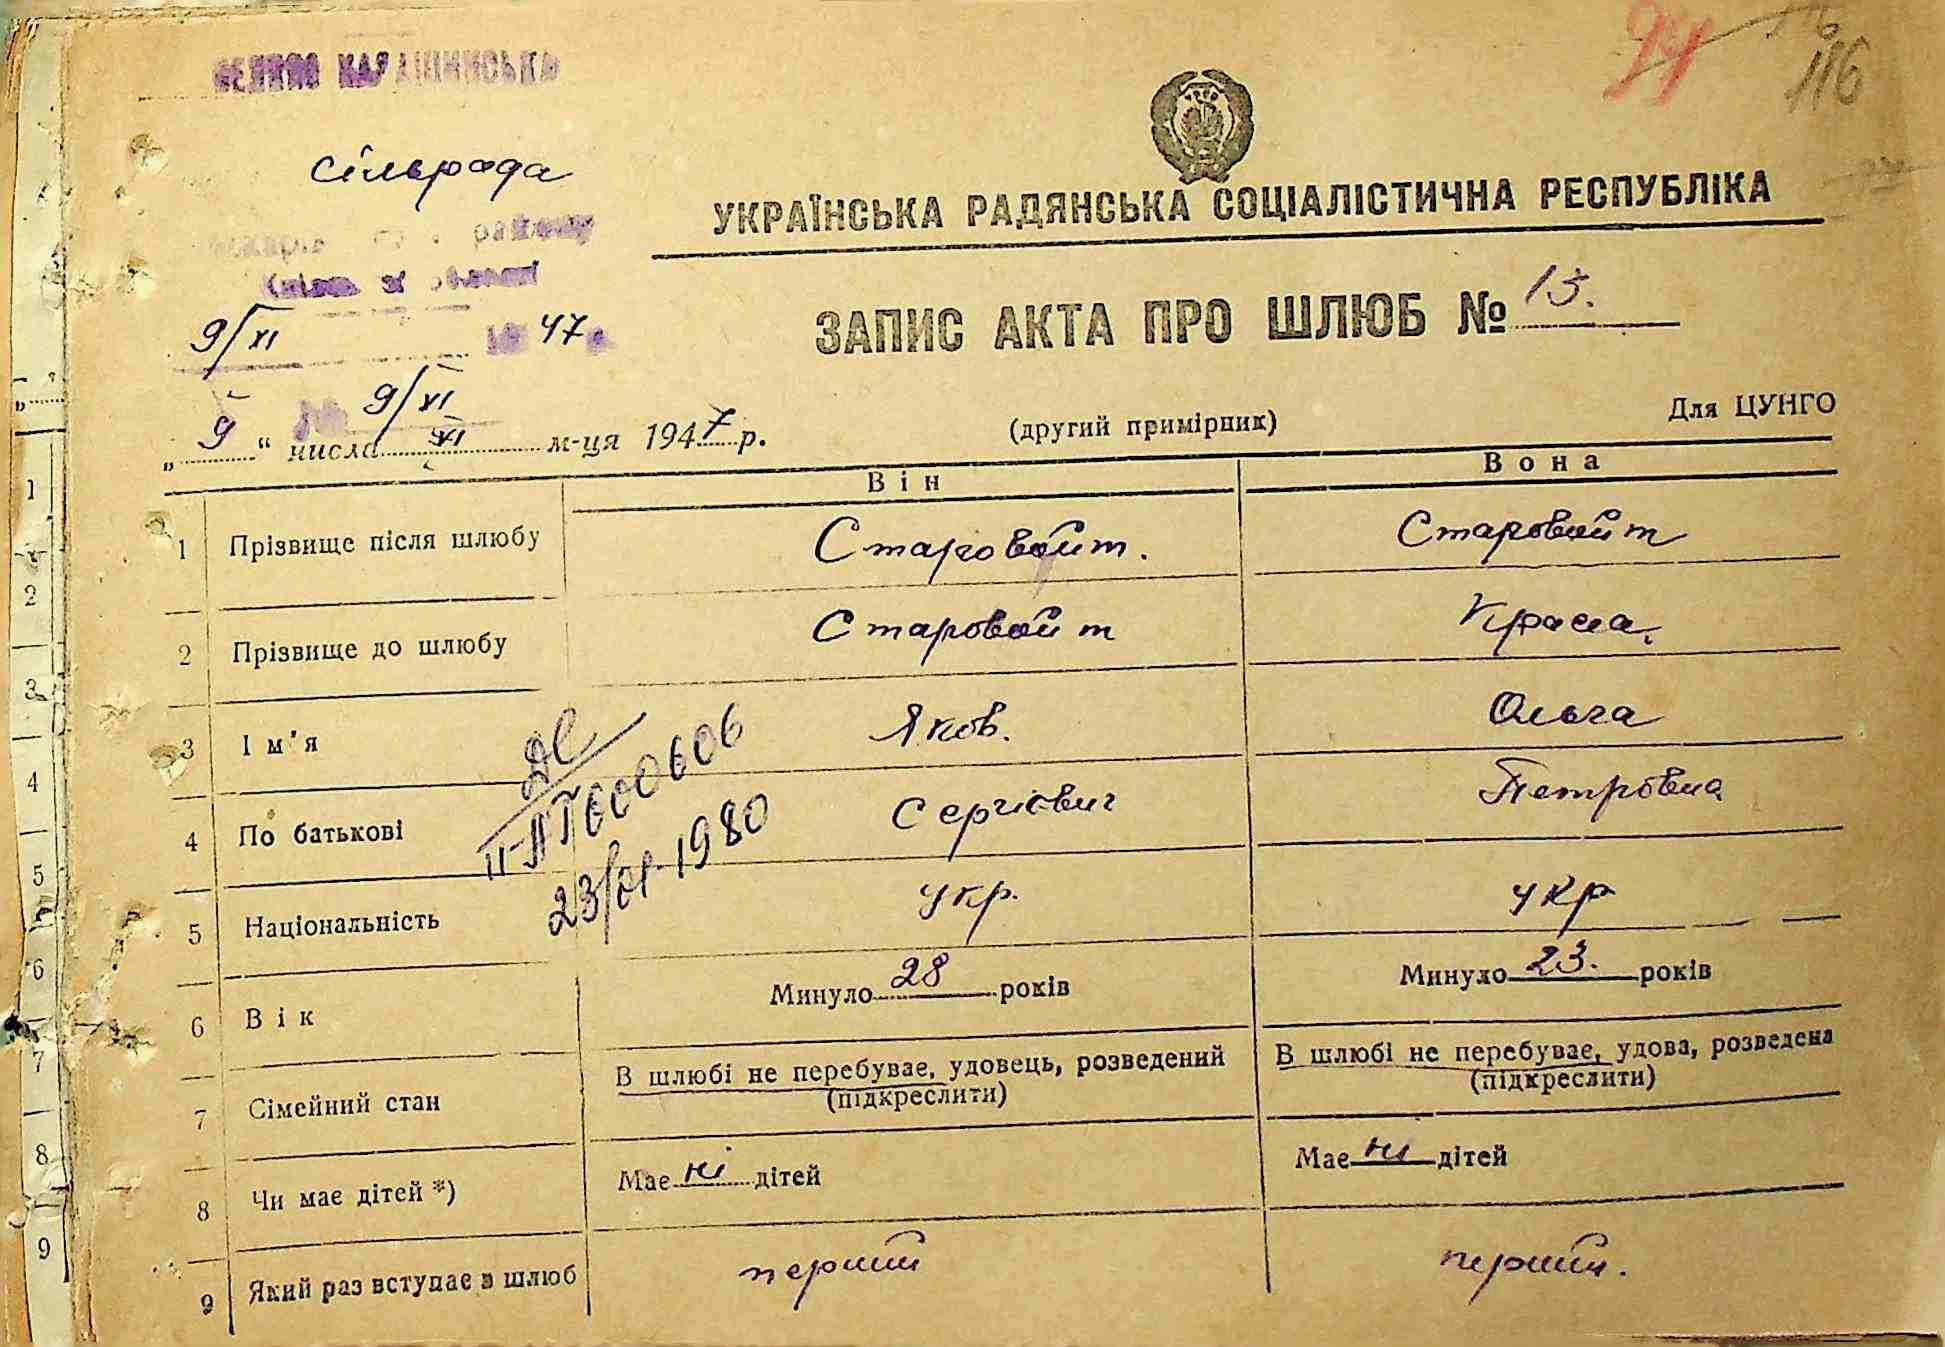 ВЕЛИКО КАРАШИНСЬКА
сільрада
району
області
9/XI 1947 р.
9/XI
„ 9 “ числа XI м-ця 1947 р.
94
116
УКРАЇНСЬКА РАДЯНСЬКА СОЦІАЛІСТИЧНА РЕСПУБЛІКА
ЗАПИС АКТА ПРО ШЛЮБ № 13.
(другий примірник)
Для ЦУНГО
Він Вона
1 Прізвище після шлюбу Старовойт. Старовойт
2 Прізвище до шлюбу Старовойт
3 Ім'я Яков. Ольга
4 По батькові Сергієвич Петровна
5 Національність укр. укр
6 Вік Минуло 28 років Минуло 23. років
7 Сімейний стан В шлюбі не перебуває, удовець, розведений В шлюбі не перебуває, удова, розведена
(підкреслити) (підкреслити)
8 Чи має дітей *) Має ні дітей Має ні дітей
9 Який раз вступає в шлюб перший перший.
600606
23/01-1980
1
2
3
4
5
6
7
8
9